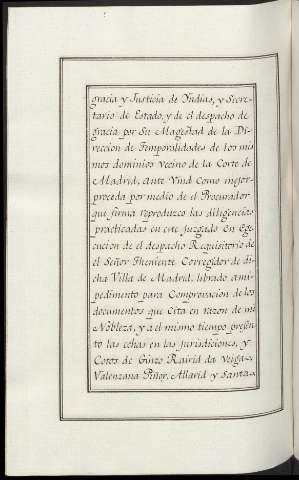 gracia y Justicia de Yndias, y Secre-
tario de Estado, y de el despacho de
gracia por Su Magestad de la Di-
reccion de Temporalidades de los mis
mos dominios Vecino de la Corte de
Madrid, ante Vmd. Como mejor
proceda por medio de el Procurador
que firma reproduzco las diligencias
practicadas en este juzgado En Ege-
cucion de el despacho Requisitorio de
el Señor Theniente Corregidor de di-
cha Villa de Madrid, librado a mi
pedimento para Comprovacion de los
documentos que cita en razon de mi
Nobleza, y a el mismo tiempo presen
to las echas en las Jurisdiciones, y
Cotos de Ginzo Rairid da Veiga
Valenzana Piñor, Allarid y Santa-